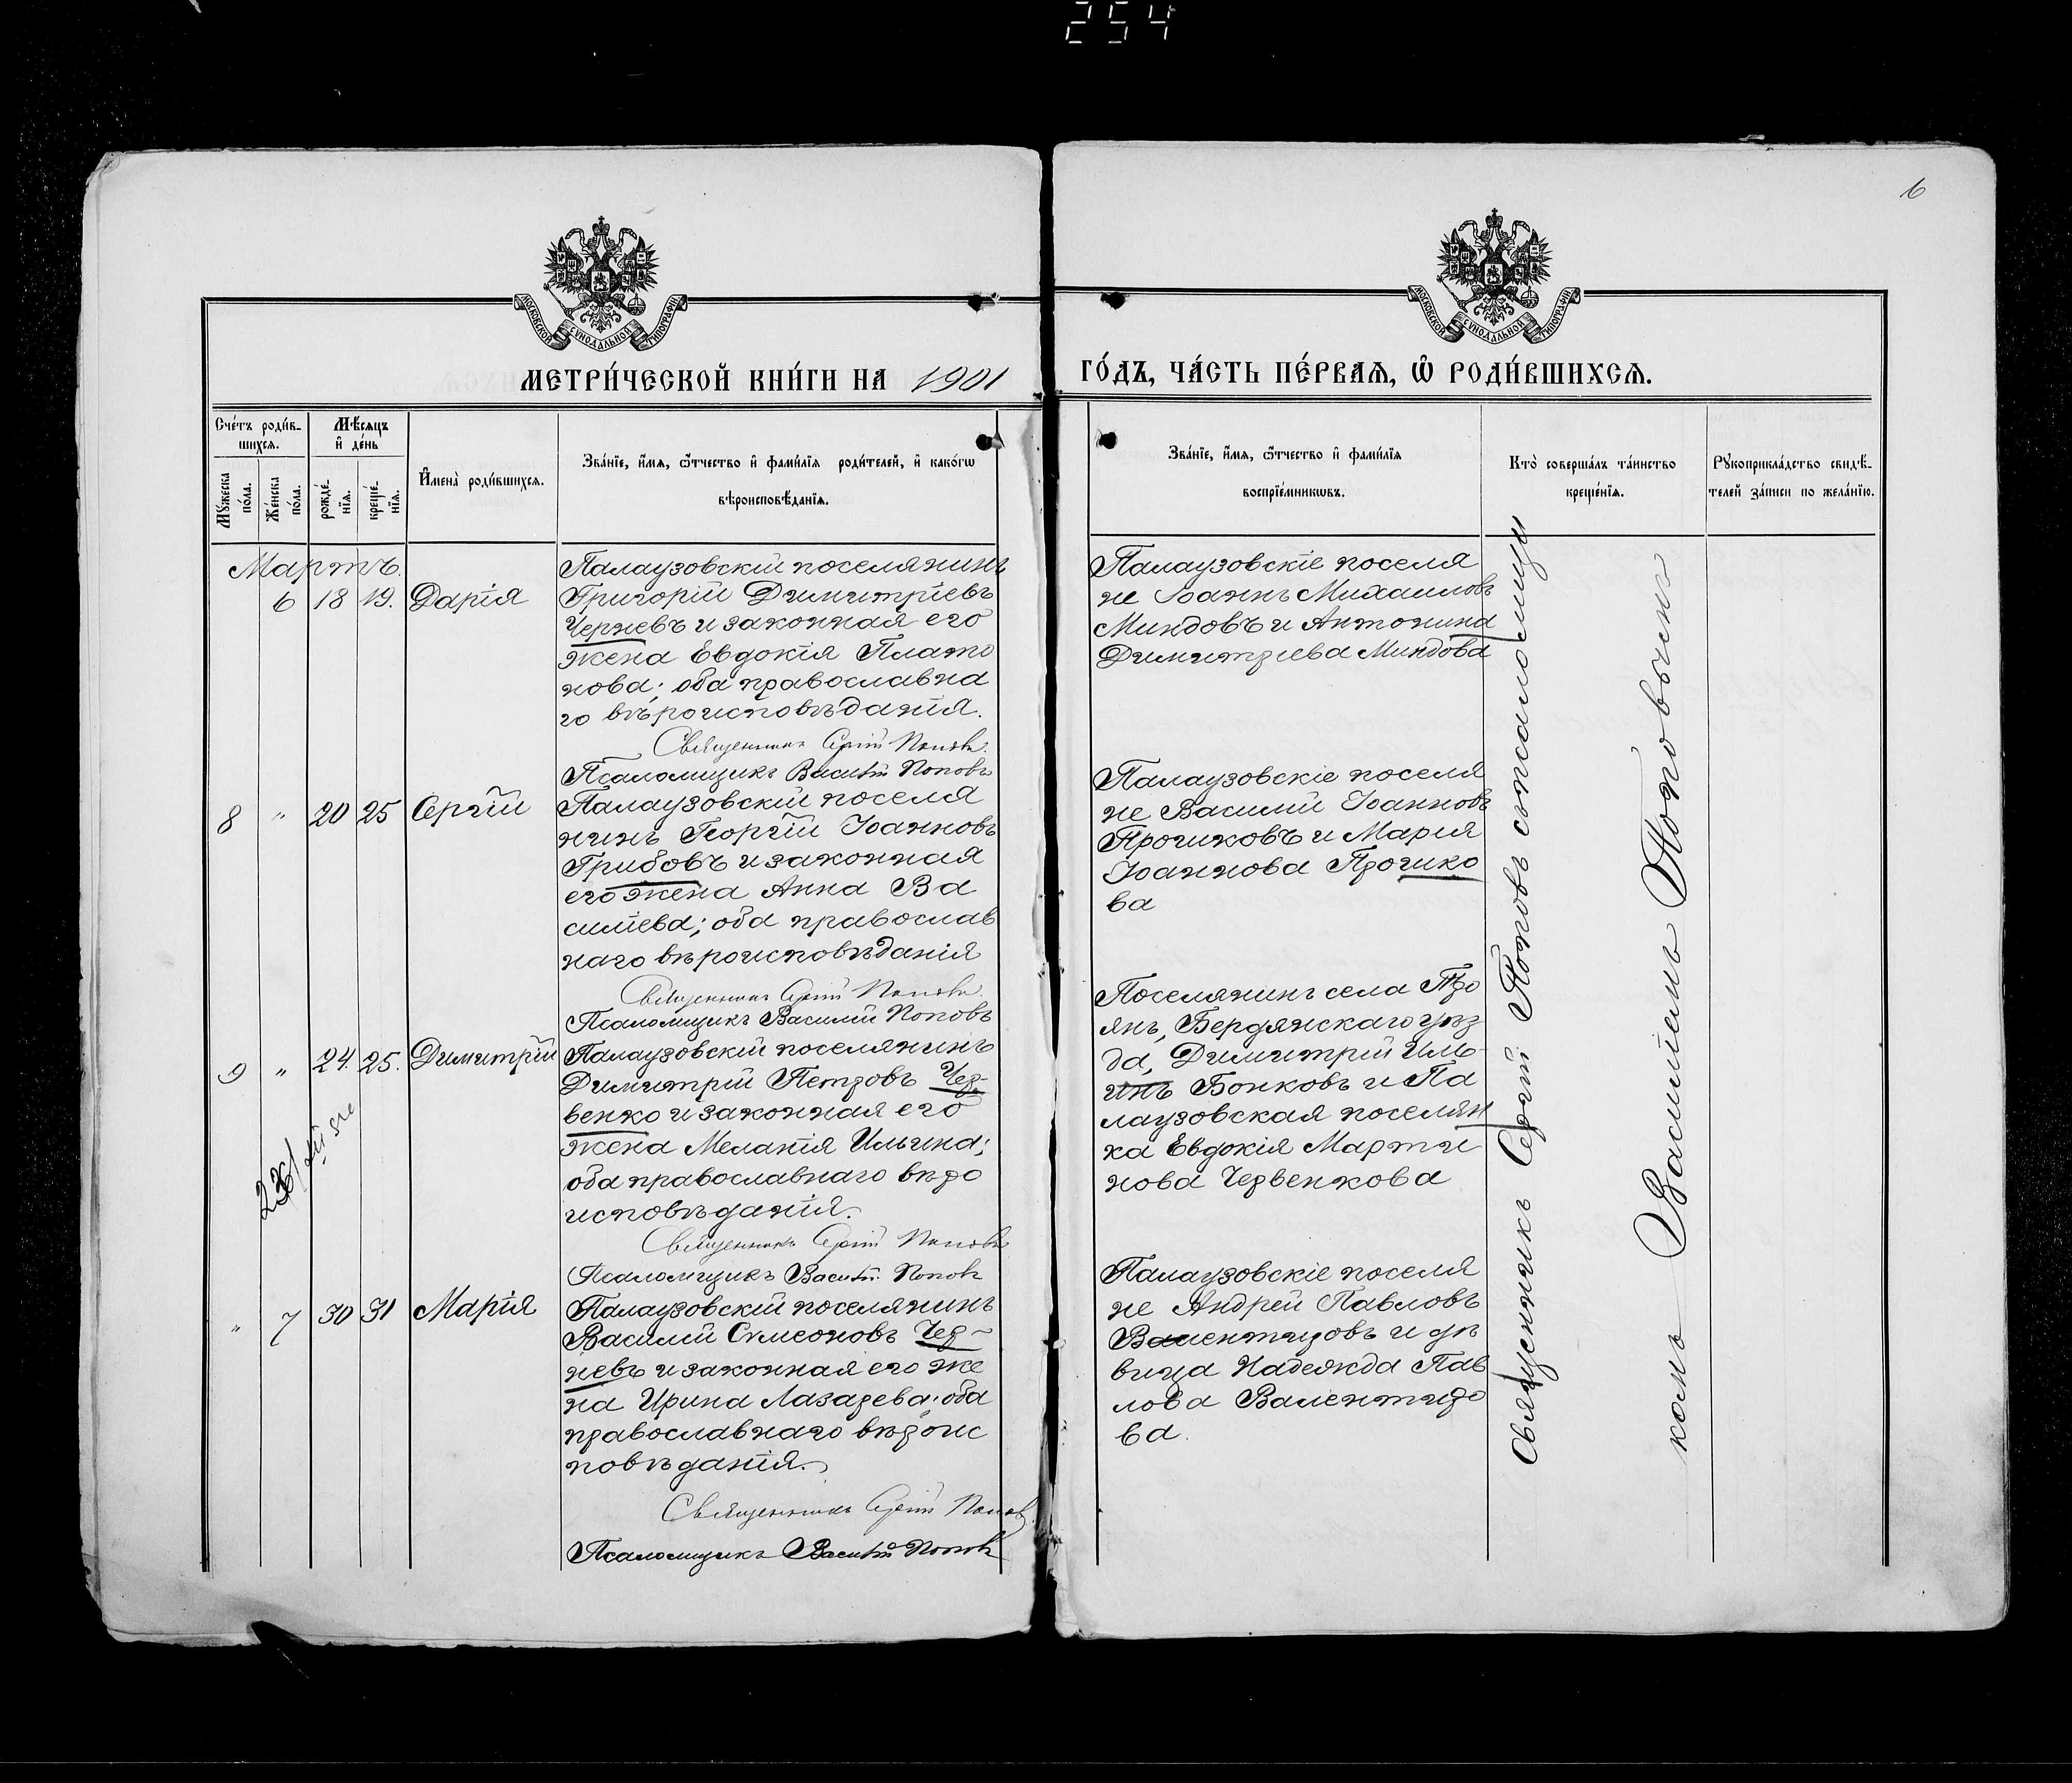 254
6
МОСКОВСКОЙ СѴНОДАЛЬНОЙ ТИПОГРАФІИ
МОСКОВСКОЙ СѴНОДАЛЬНОЙ ТИПОГРАФІИ
МЕТРИ́ЧЕСКОЙ КНИ́ГИ НА 1901
ГО́ДЪ, ЧА́СТЬ ПЕ́РВАѦ, Ѡ҆ РОДИ́ВШИХСѦ.
Сче́тъ роди́в-
шихсѧ.
Мѣ́сѧцъ
и҆ де́нь
Мꙋ́жеска
по́ла.
Же́нска
по́ла.
рожде́-
нїѧ.
креще́-
нїѧ.
И҆мена̀ роди́вшихсѧ.
Зва́нїе, и҆́мѧ, ѻ҆́тчество и҆ фами́лїѧ роди́телей, и҆ како́гѡ
вѣроисповѣ́данїѧ.
Зва́нїе, и҆́мѧ, ѻ҆́тчество и҆ фами́лїѧ
воспрїе́мникѡвъ.
Кто̀ соверша́лъ та́инство
креще́нїѧ.
Рꙋкоприкла́дство свидѣ́-
телей за́писи по жела́нїю.
Мартъ.
6 18 19. Дарія
Палаузовскій поселянинъ
Григорій Димитріевъ
Чернев и законная его
жена Евдокія Плато
нова; оба православна
го вѣроисповѣданія.
Священникъ Сергій Поповъ.
Псаломщикъ Василій Поповъ
Палаузовскіе поселя
не Іоаннъ Михаиловъ
Миндовъ и Антонина
Димитріева Миндова
8 " 20 25 Сергій
Палаузовскій поселя
нинъ Георгій Іоанновъ
Грибовъ и законная
его жена Анна Ва
силіева; оба православ
наго вѣроисповѣданія
Священникъ Сергій Поповъ.
Псаломщикъ Василій Поповъ
Палаузовскіе поселя
не Василій Іоанновъ
Прочиковъ и Марія
Іоаннова Прочико
ва
9 " 24. 25. Димитрій
Палаузовскій поселянинъ
Димитрій Петровъ Чер-
венко и законная его
жена Меланія Ильина;
оба православнаго вѣро
исповѣданія.
Священникъ Сергій Поповъ
Псаломщикъ Василій Поповъ
Поселянинъ села Тро
янъ, Бердянскаго уѣз
да, Димитрій Иль
инъ Бонковъ и Па
лаузовская поселян
ка Евдокія Марти
нова Червенкова
" 7 30 31 Марія
Палаузовскій поселянинъ
Василій Сѵмеоновъ Чер-
невъ и законная его же
на Ирина Лазарева; оба
православнаго вѣроис
повѣданія.
Священникъ Сергій Поповъ
Псаломщикъ Василій Поповъ
Палаузовскіе поселя
не Андрей Павловъ
Валентировъ и дѣ
вица Надежда Пав
лова Валентиро
ва.
Священникъ Сергій Поповъ съ псаломщи
комъ Василіемъ Поповымъ